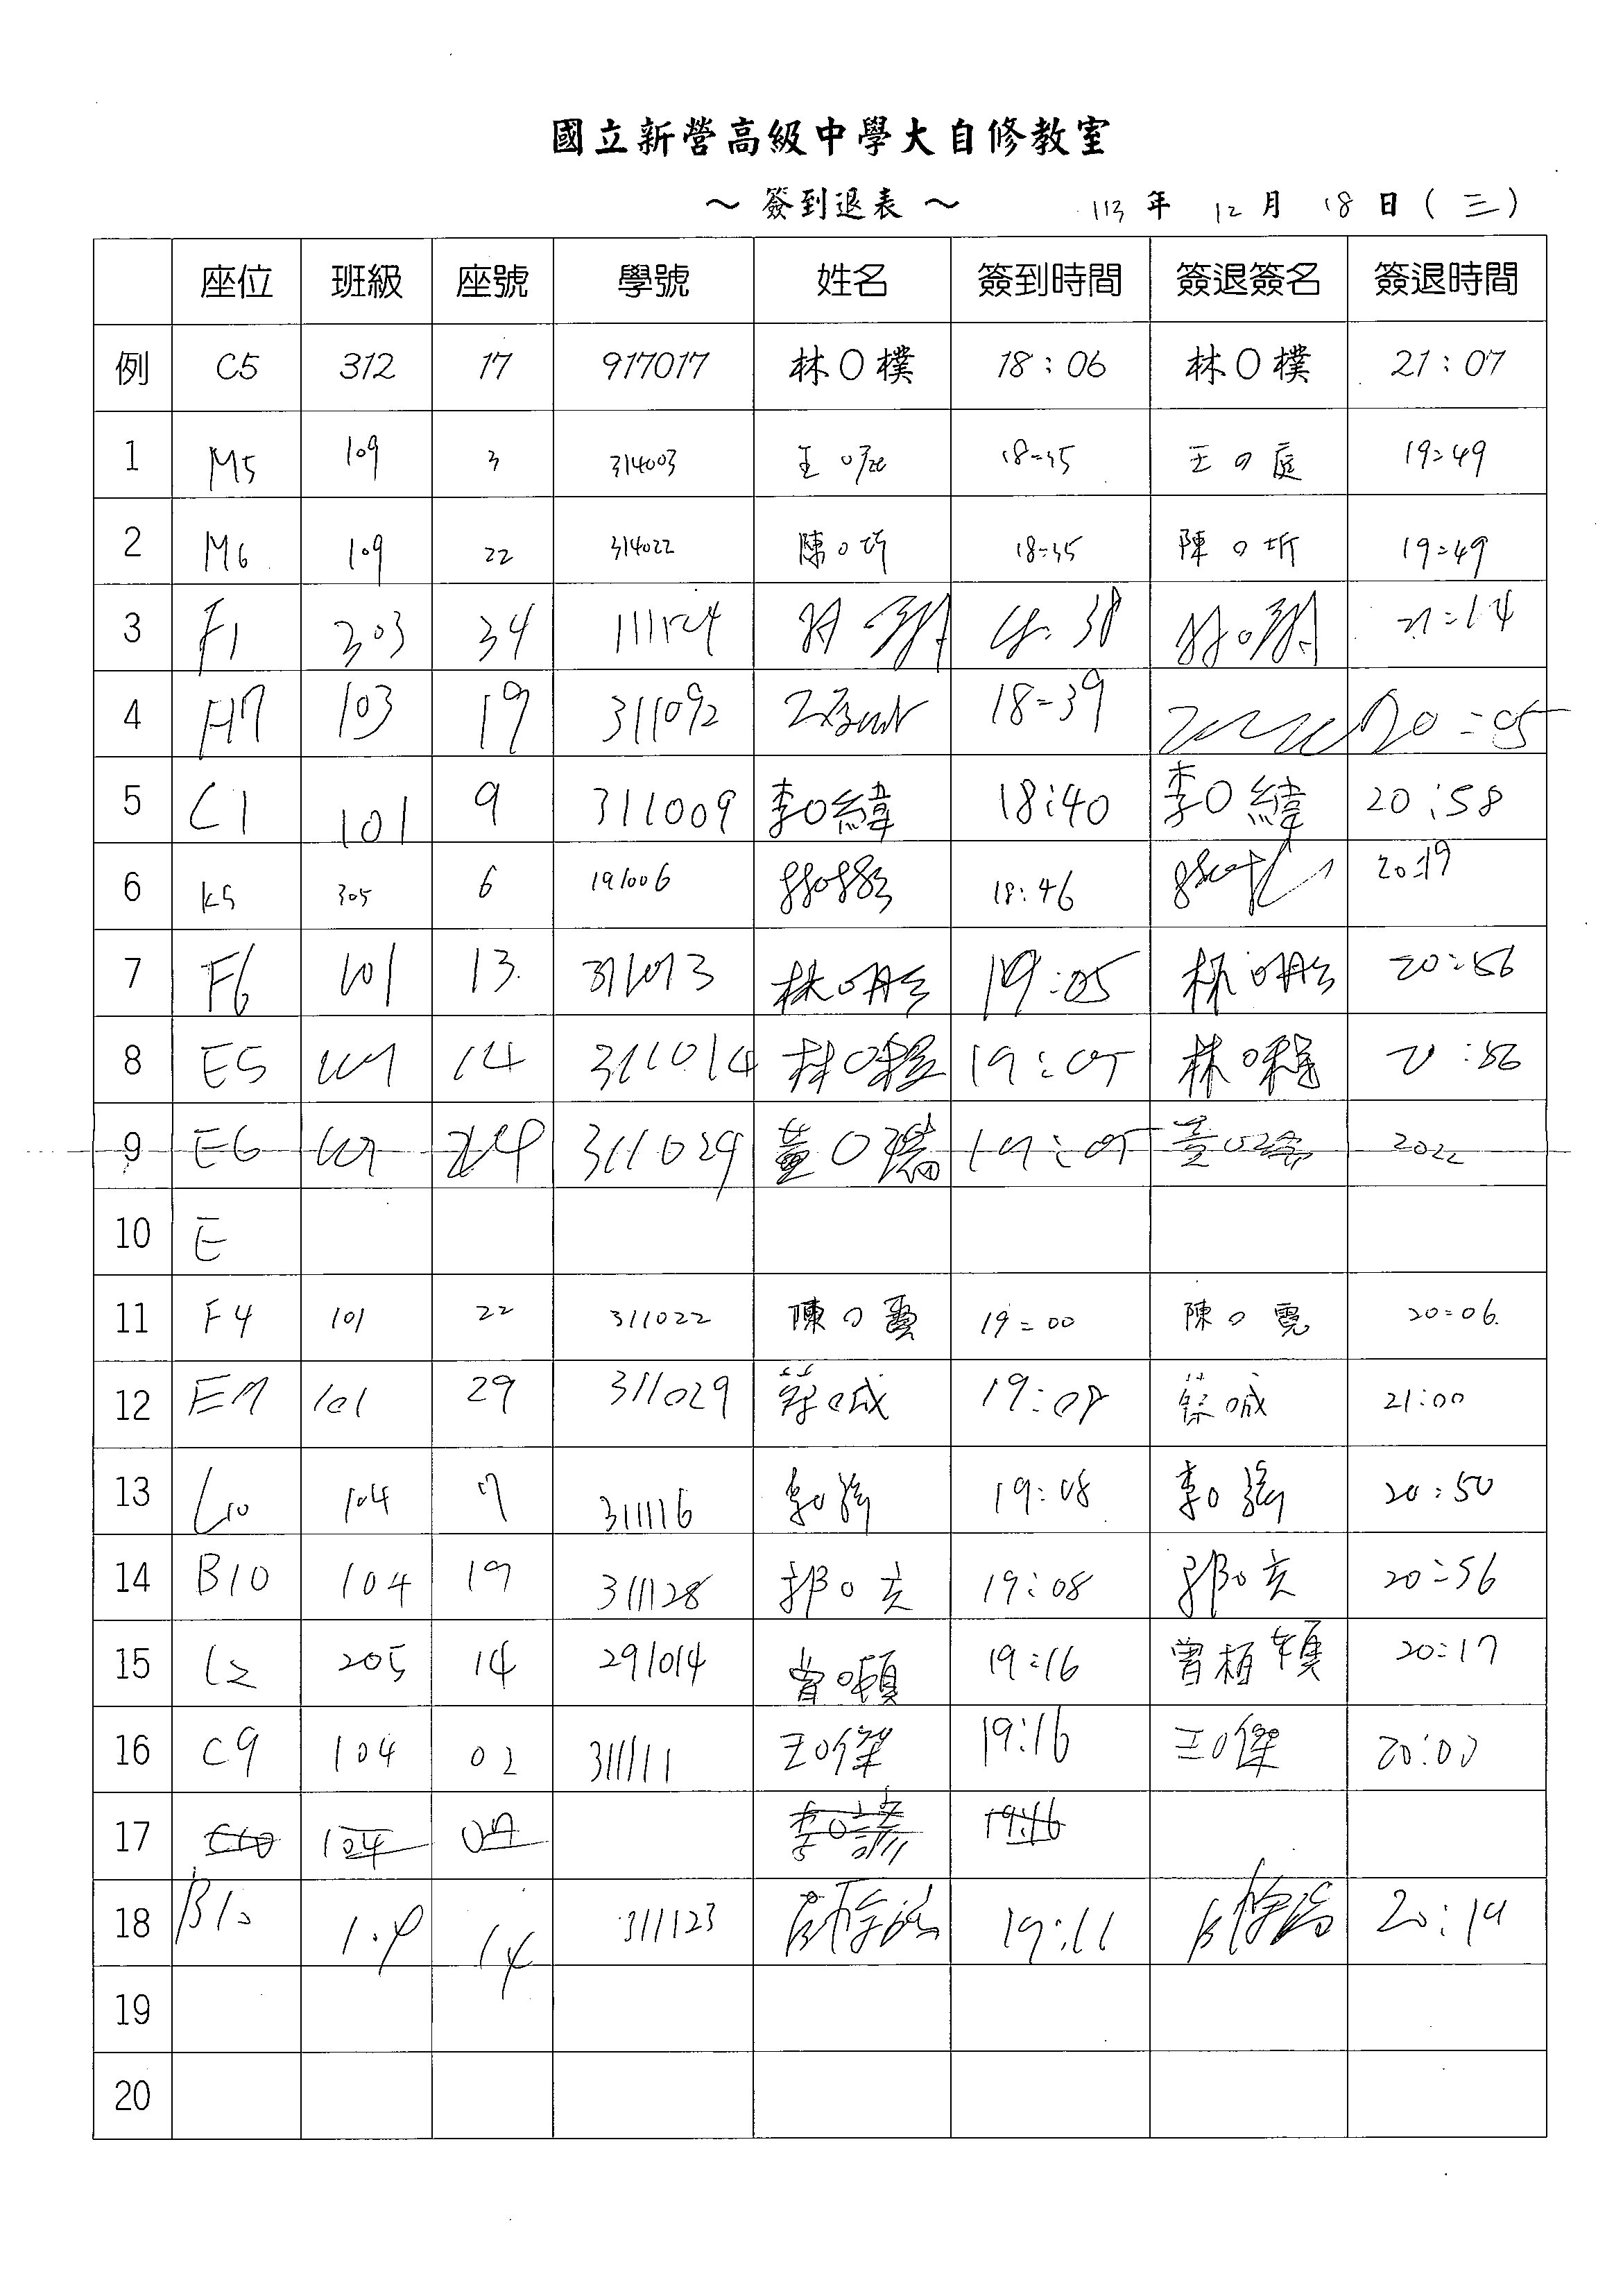 國立新營高級中學大自修教室
～ 簽到退表 ～ 113 年 12 月 18 日 ( 三 )
座位 班級 座號 學號 姓名 簽到時間 簽退簽名 簽退時間
例 C5 312 17 917017 林O樸 18:06 林O樸 21:07
1 M5 109 3 314003 王O 18=35 王O庭 19=49
2 M6 109 22 314022 陳O圻 18=35 陳O圻 19=49
3 F1 303 34 21=14
4 H7 103 19 311092 18-39 20=05
5 C1 101 9 311009 李O緯 18:40 李O緯 20:58
6 K5 305 6 191006 18:46 20:19
7 F6 101 13 311013 林O 19:05 林O 20:56
8 E5 101 14 311014 林O程 19:05 林O程 :56
9 E6 311029 董O瑞 19:05 董O 2022
10 E
11 F4 101 22 311022 陳O霓 19=00 陳O霓 20=06
12 E7 101 29 311029 蔡O誠 19:07 蔡O誠 21:00
13 104 7 311116 李O 19:08 李O 20:50
14 B10 104 19 311128 郭O亥 19:08 郭O亥 20=56
15 L2 205 14 291014 曾O頤 19:16 曾 20:17
16 C9 104 02 311111 王O傑 19:16 王O傑 20:00
17 C10 104 李O 19:16
18 104 14 311123 19:11 20:19
19
20